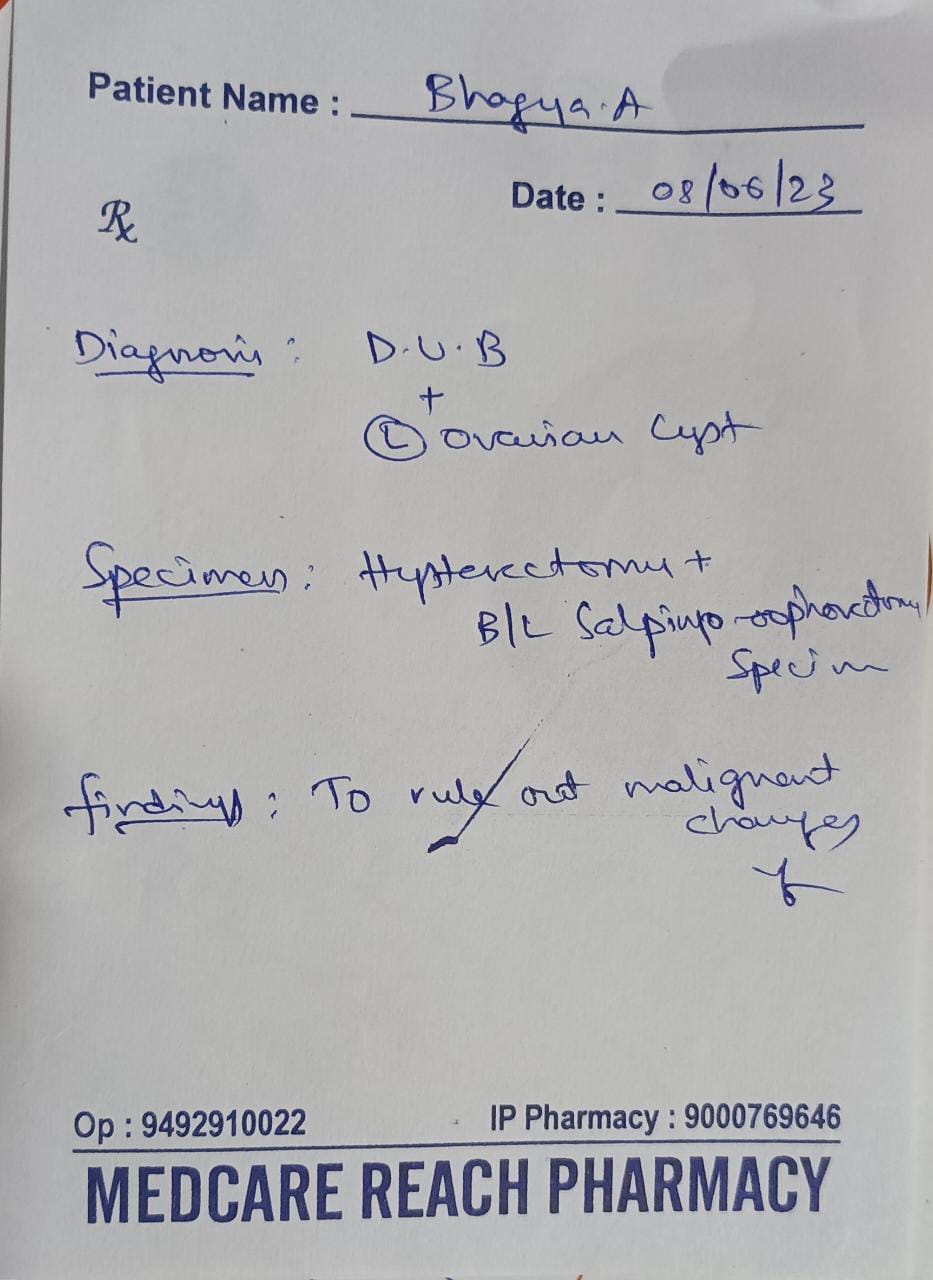 Patient Name : Bhagya.A
Date : 08/06/23
Rx
Diagnosis : D.U.B
+
Ⓛ ovarian Cyst
Specimen : Hysterectomy +
B/L Salpingo-oophorectomy
Specim
findings : To rule out malignant
changes
Op : 9492910022 IP Pharmacy : 9000769646
MEDCARE REACH PHARMACY